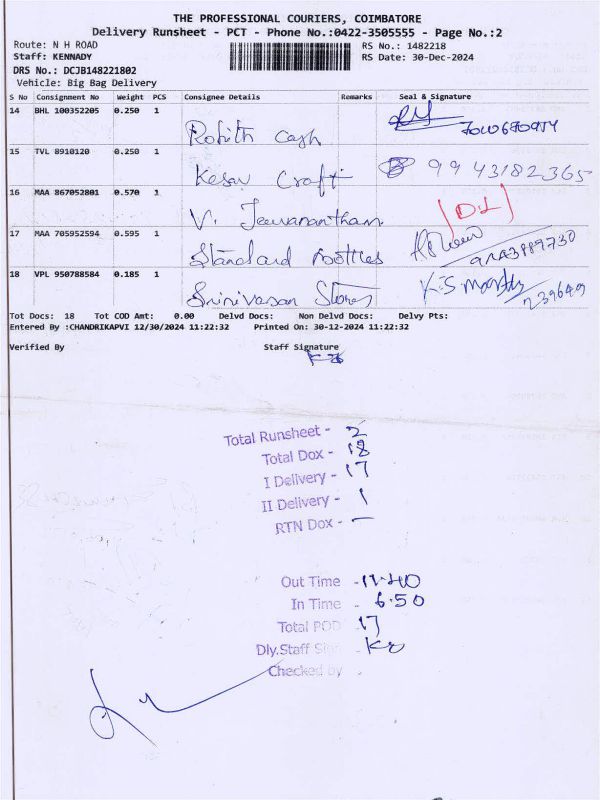 THE PROFESSIONAL COURIERS, COIMBATORE
Delivery Runsheet - PCT - Phone No.:0422-3505555 - Page No.:2
Route: N H ROAD RS No.: 1482218
Staff: KENNADY RS Date: 30-Dec-2024
DRS No.: DCJB148221802
Vehicle: Big Bag Delivery
S No Consignment No Weight PCS Consignee Details Remarks Seal & Signature
14 BHL 100352205 0.250 1
Rohith Cash
15 TVL 8910120 0.250 1 9943182365
Kesav Craft
16 MAA 867052801 0.570 1
V. Jeevanantham
17 MAA 705952594 0.595 1
Standard Bottles
18 VPL 950788584 0.185 1
Srinivasan Stores 239649
Tot Docs: 18 Tot COD Amt: 0.00 Delvd Docs: Non Delvd Docs: Delvy Pts:
Entered By :CHANDRIKAPVI 12/30/2024 11:22:32 Printed On: 30-12-2024 11:22:32
Verified By Staff Signature
Total Runsheet - 2
Total Dox - 18
I Delivery - 17
II Delivery - 1
RTN Dox - —
Out Time - 11.40
In Time - 6.50
Total POD 17
Dly.Staff Sign
Checked by